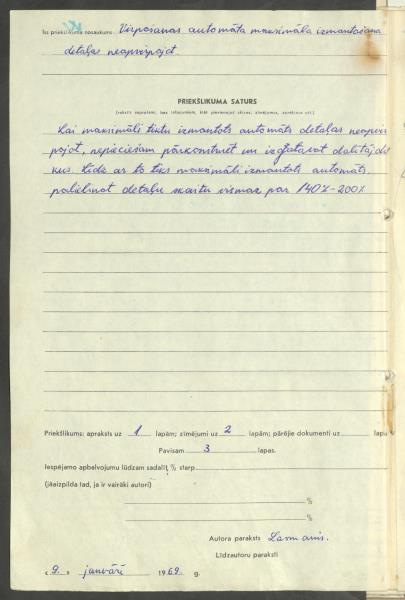 Īss priekšlikuma nosaukums: Virpošanas automāta maksimāla izmantošana
detaļas neapvirpojot.
PRIEKŠLIKUMA SATURS
Lai maksimāli tiktu izmantots automāts detaļas neapvir
pojot, nepieciešam pārkonstruēt un izgatavot dalītāj dis
kus. Līdz ar to tiks maksimāli izmantots automāts,
palielinot detaļu skaitu vismaz par 140%-200%
Priekšlikums: apraksts uz 1 lapām; zīmējumi uz 2 lapām; pārējie dokumenti uz lapā
Pavisam 3 lapas.
Iespējamo apbalvojumu lūdzam sadalīt % starp
(jāaizpilda tad, ja ir vairāki autori)
%
%
Autora paraksts Lasmanis.
Līdzautoru paraksti
« 9. » janvārī 1969. g.